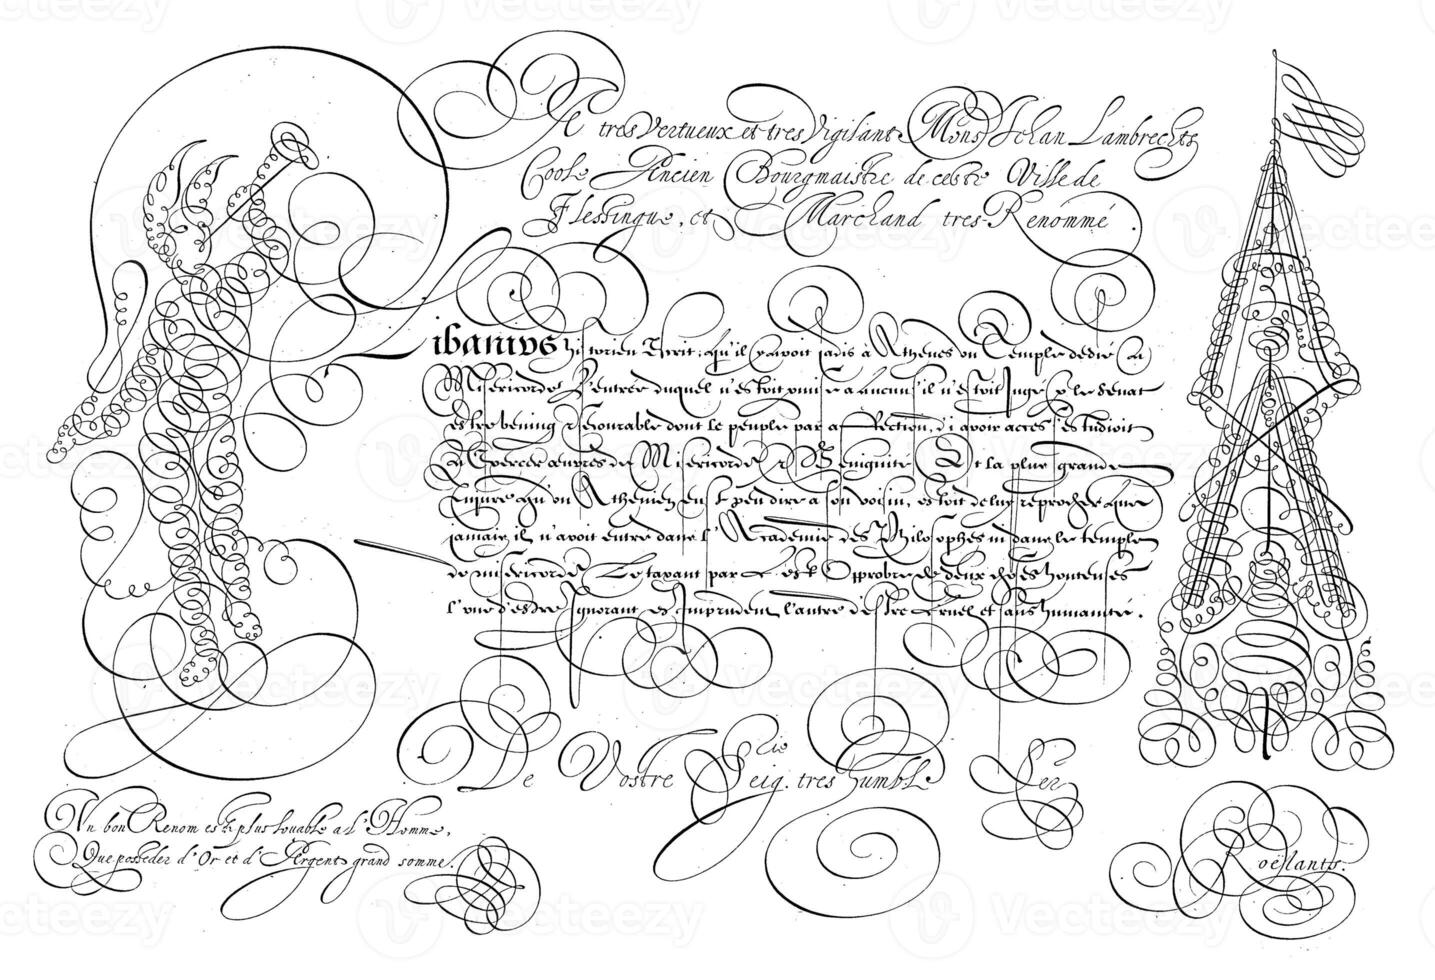 A tres Vertueux et tres Vigilant Mons Jehan Lambrechts
Coole Ancien Bourgmaistre de ceste Ville de
Flessingue, et Marchand tres-Renommé
Libanius historien Escrit, qu'il y avoit jadis à Athenes un Temple dedié à
Misericorde, l'entree duquel n'estoit ouvise a aucun s'il n'estoit Jugé p le Senat
estre bening & honorable dont le peuple par affection, d'i avoir acces s'estudioit
à Exercer œuvres de Misericorde & Benignité. Et la plus grande
Injure qu'un Athenien eust peu dire a son voisin, estoit de luy reprocher que
jamais il n'avoit entré dans l'Academie des Philosophes ni dans le temple
de misericorde Le taxant par l'opprobre de deux choses honteuses
l'une d'estre Ignorant et Imprudent, l'autre d'estre Cruel et sans humanité.
De Vostre Seig.rie tres humble Ser
Un bon Renom est plus louable a l'Homme,
Que posseder d'Or et d'Argent grand somme.
Roelants.
Vecteezy